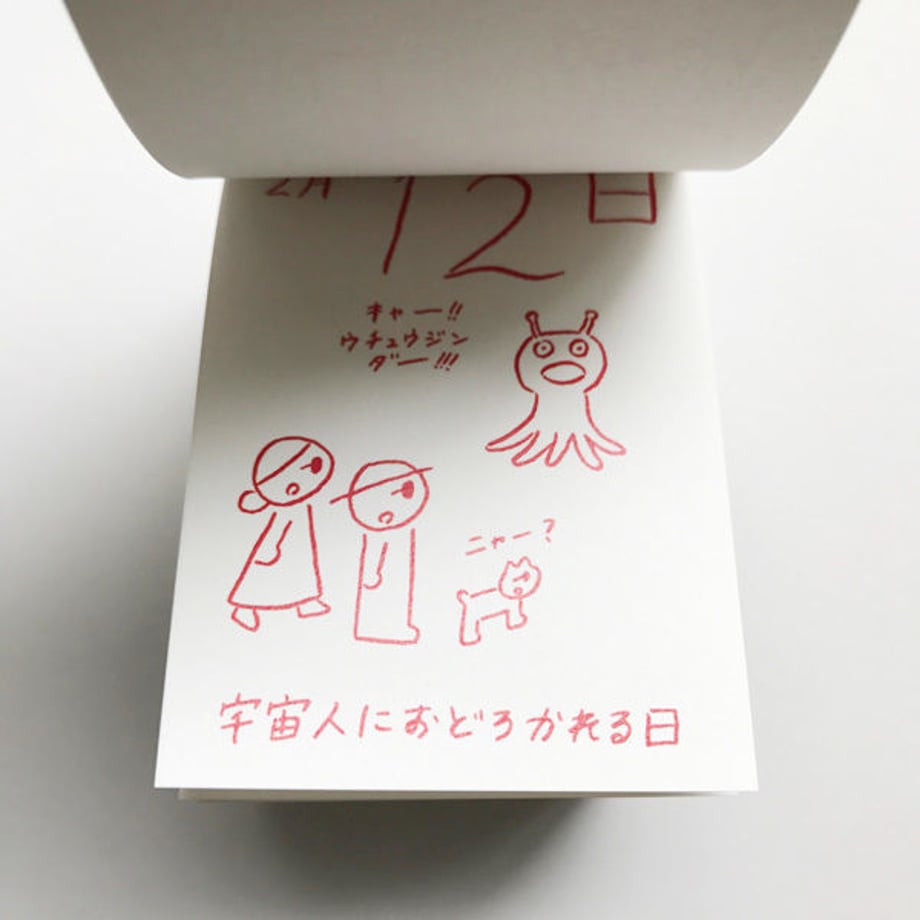 2月 12日
キャー!!
ウチュウジン
ダー!!!
ニャー?
宇宙人におどろかれる日